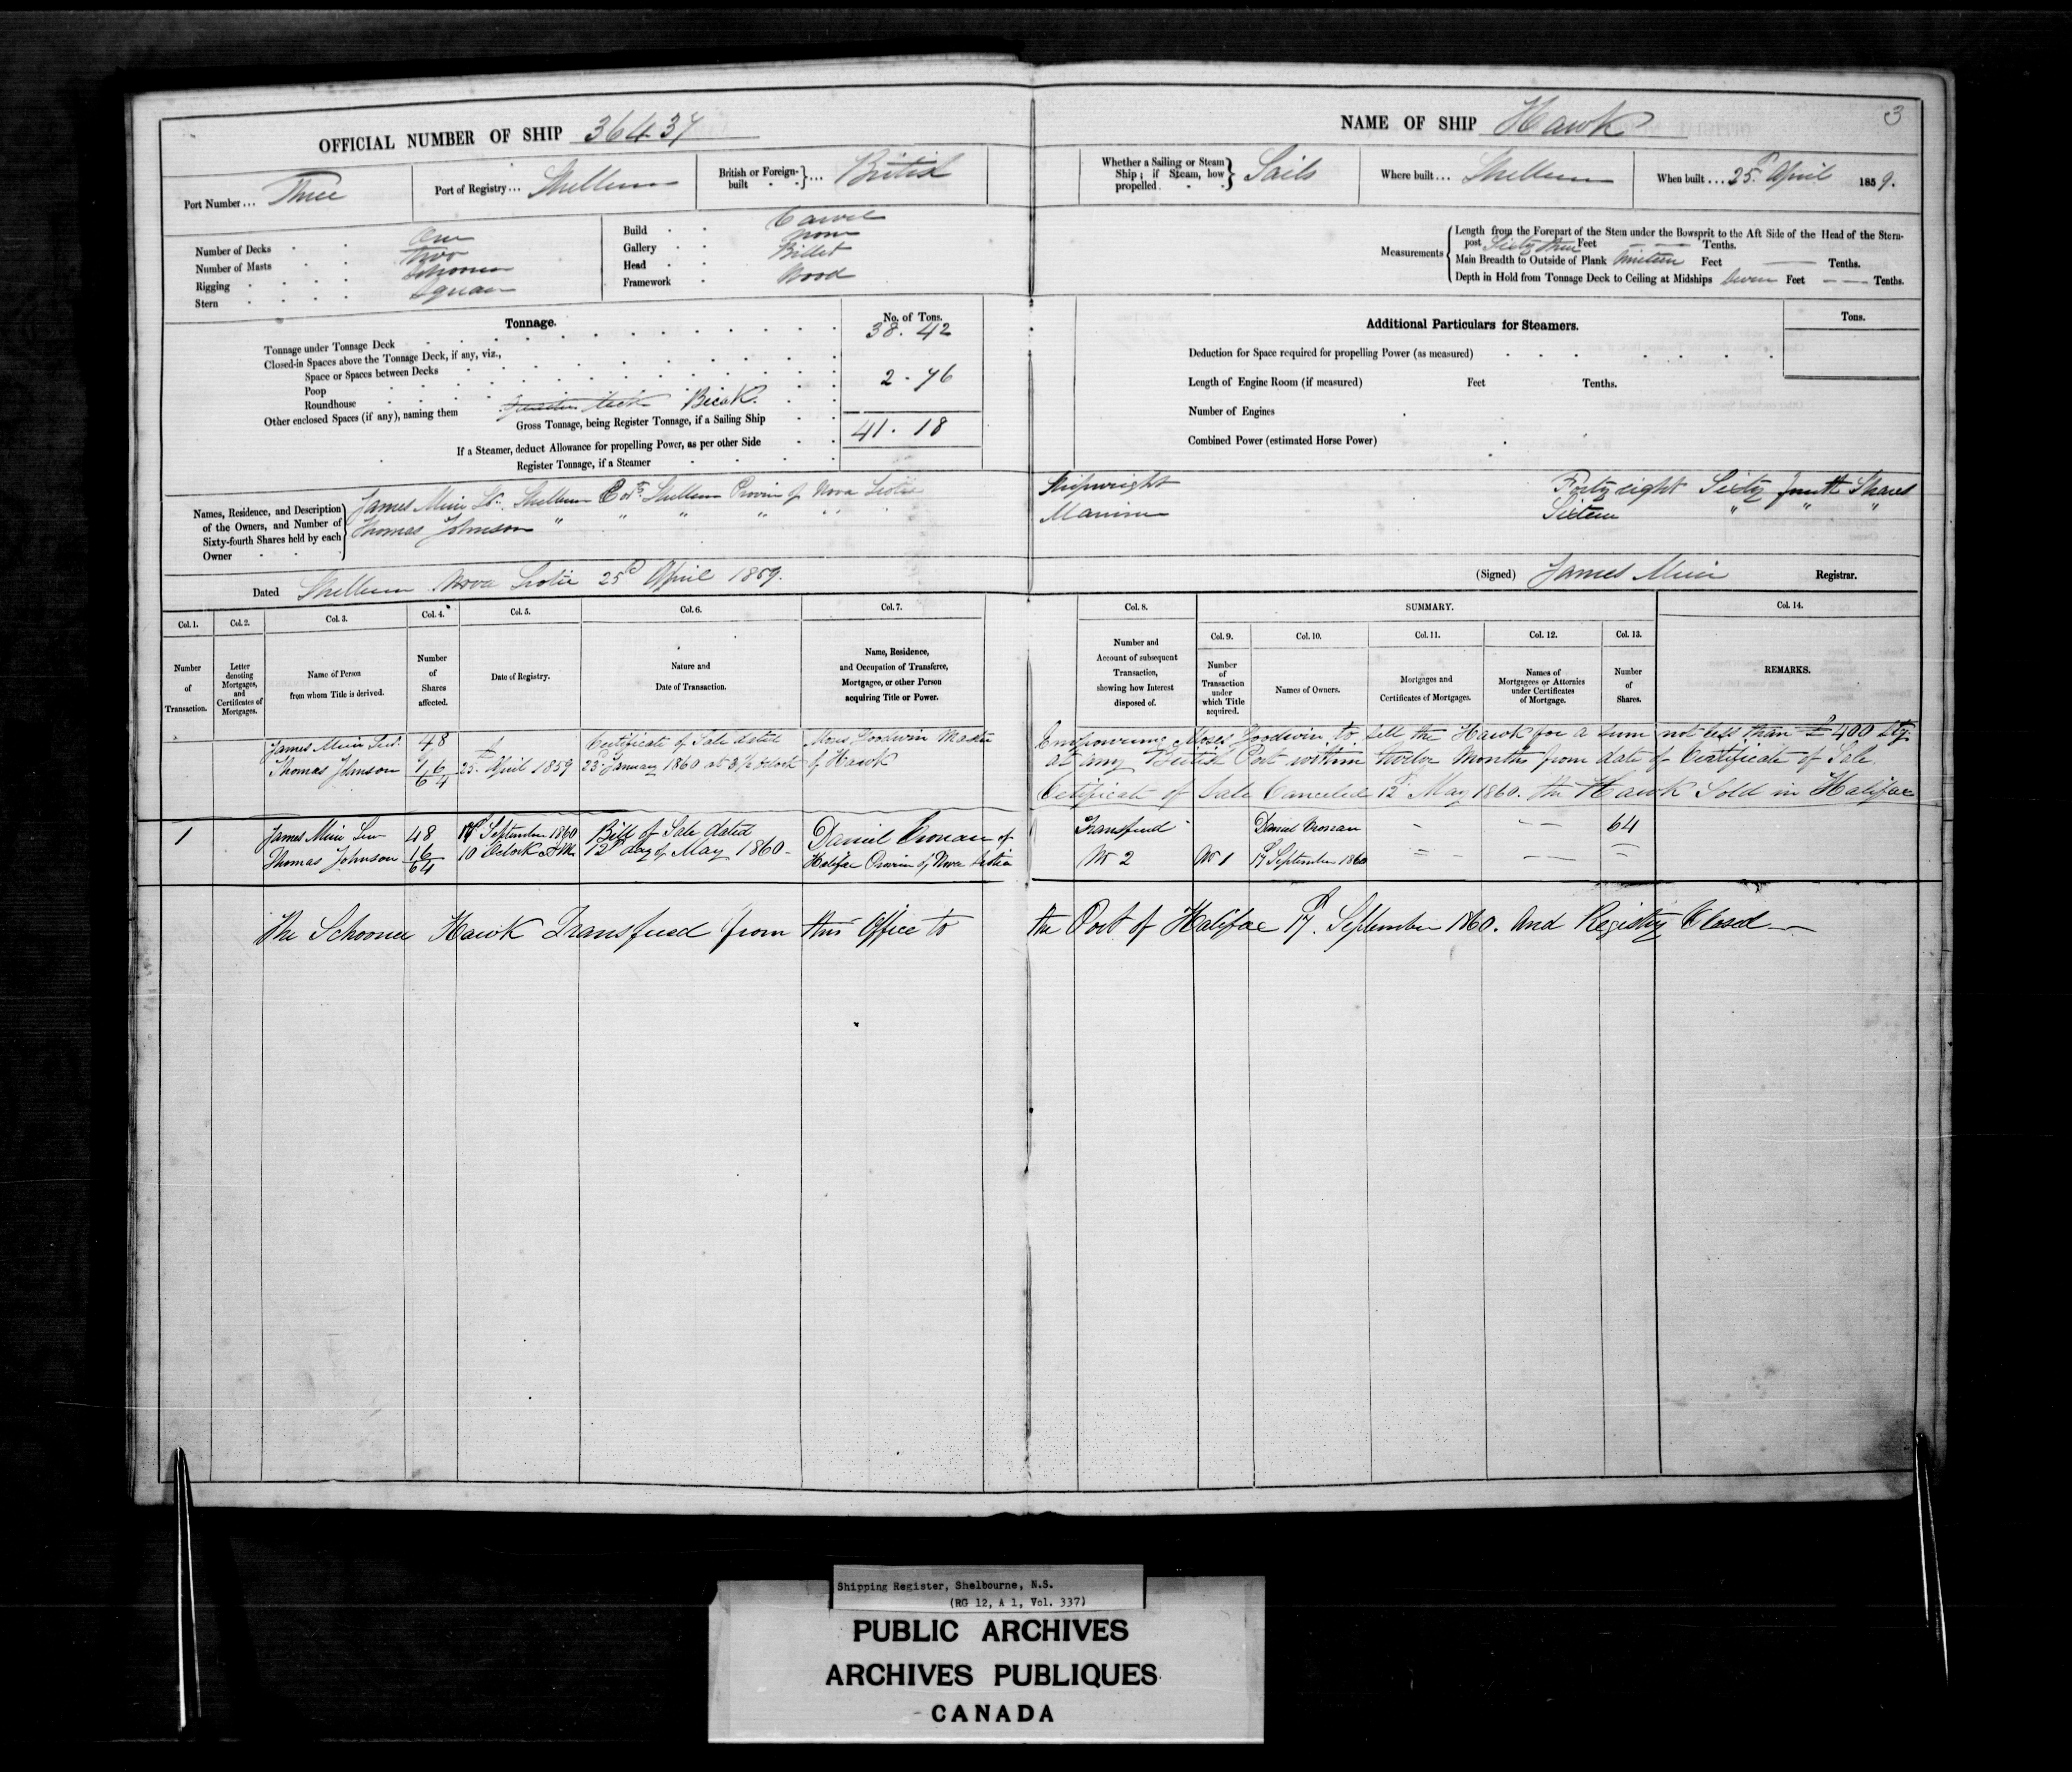 3
OFFICIAL NUMBER OF SHIP 36437
NAME OF SHIP Hawk
Port Number ... Three
Port of Registry ... Shelburne
British or Foreign-built } ... British
Whether a Sailing or Steam Ship; if Steam, how propelled } Sails
Where built ... Shelburne
When built ... 25th April 1859.
Number of Decks One
Number of Masts Two
Rigging Schooner
Stern Square
Build Carvel
Gallery None
Head Billet
Framework Wood
Measurements
Length from the Forepart of the Stem under the Bowsprit to the Aft Side of the Head of the Stern-
post Sixty three Feet — — Tenths.
Main Breadth to Outside of Plank Nineteen Feet — Tenths.
Depth in Hold from Tonnage Deck to Ceiling at Midships Seven Feet — — Tenths.
Tonnage.
No. of Tons.
Tonnage under Tonnage Deck 38.42
Closed-in Spaces above the Tonnage Deck, if any, viz.,
Space or Spaces between Decks
Poop 2.76
Roundhouse
Other enclosed Spaces (if any), naming them Quarter deck Break.
Gross Tonnage, being Register Tonnage, if a Sailing Ship 41.18
If a Steamer, deduct Allowance for propelling Power, as per other Side
Register Tonnage, if a Steamer
Additional Particulars for Steamers.
Tons.
Deduction for Space required for propelling Power (as measured)
Length of Engine Room (if measured) Feet Tenths.
Number of Engines
Combined Power (estimated Horse Power)
Names, Residence, and Description
of the Owners, and Number of
Sixty-fourth Shares held by each
Owner
James Muir Sr. Shelburne Co. Shelburne Province of Nova Scotia Shipwright Forty eight Sixty fourth Shares
Thomas Johnson " " " " " " Mariner Sixteen " " "
Dated Shelburne Nova Scotia 25th April 1859.
(Signed) James Muir Registrar.
Col. 1. Col. 2. Col. 3. Col. 4. Col. 5. Col. 6. Col. 7. Col. 8. SUMMARY. Col. 14.
Col. 9. Col. 10. Col. 11. Col. 12. Col. 13.
Number of Transaction.
Letter denoting Mortgages, and Certificates of Mortgages.
Name of Person from whom Title is derived.
Number of Shares affected.
Date of Registry.
Nature and Date of Transaction.
Name, Residence, and Occupation of Transferee, Mortgagee, or other Person acquiring Title or Power.
Number and Account of subsequent Transaction, showing how Interest disposed of.
Number of Transaction under which Title acquired.
Names of Owners.
Mortgages and Certificates of Mortgages.
Names of Mortgagees or Attornies under Certificates of Mortgage.
Number of Shares.
REMARKS.
James Muir Senr. 48 Certificate of Sale dated Moses Goodwin Master Empowering Moses Goodwin to sell the Hawk for a sum not less than £400 Stg.
Thomas Johnson 16/64 25th April 1859 23d January 1860 at 3½ oclock of Hawk at any British Port within twelve Months from date of Certificate of Sale.
Certificate of Sale Canceled 12th May 1860. the Hawk Sold in Halifax
1 James Muir Senr 48 17th September 1860 Bill of Sale dated Daniel Cronan of Transferred Daniel Cronan - — — 64
Thomas Johnson 16/64 10 Oclock A.M. 12th day of May 1860 - Halifax Province of Nova Scotia No 2 No 1 17th September 1860
The Schooner Hawk Transferred from this Office to the Port of Halifax 17th September 1860. And Registry Closed —
Shipping Register, Shelbourne, N.S.
(RG 12, A 1, Vol. 337)
PUBLIC ARCHIVES
ARCHIVES PUBLIQUES
CANADA